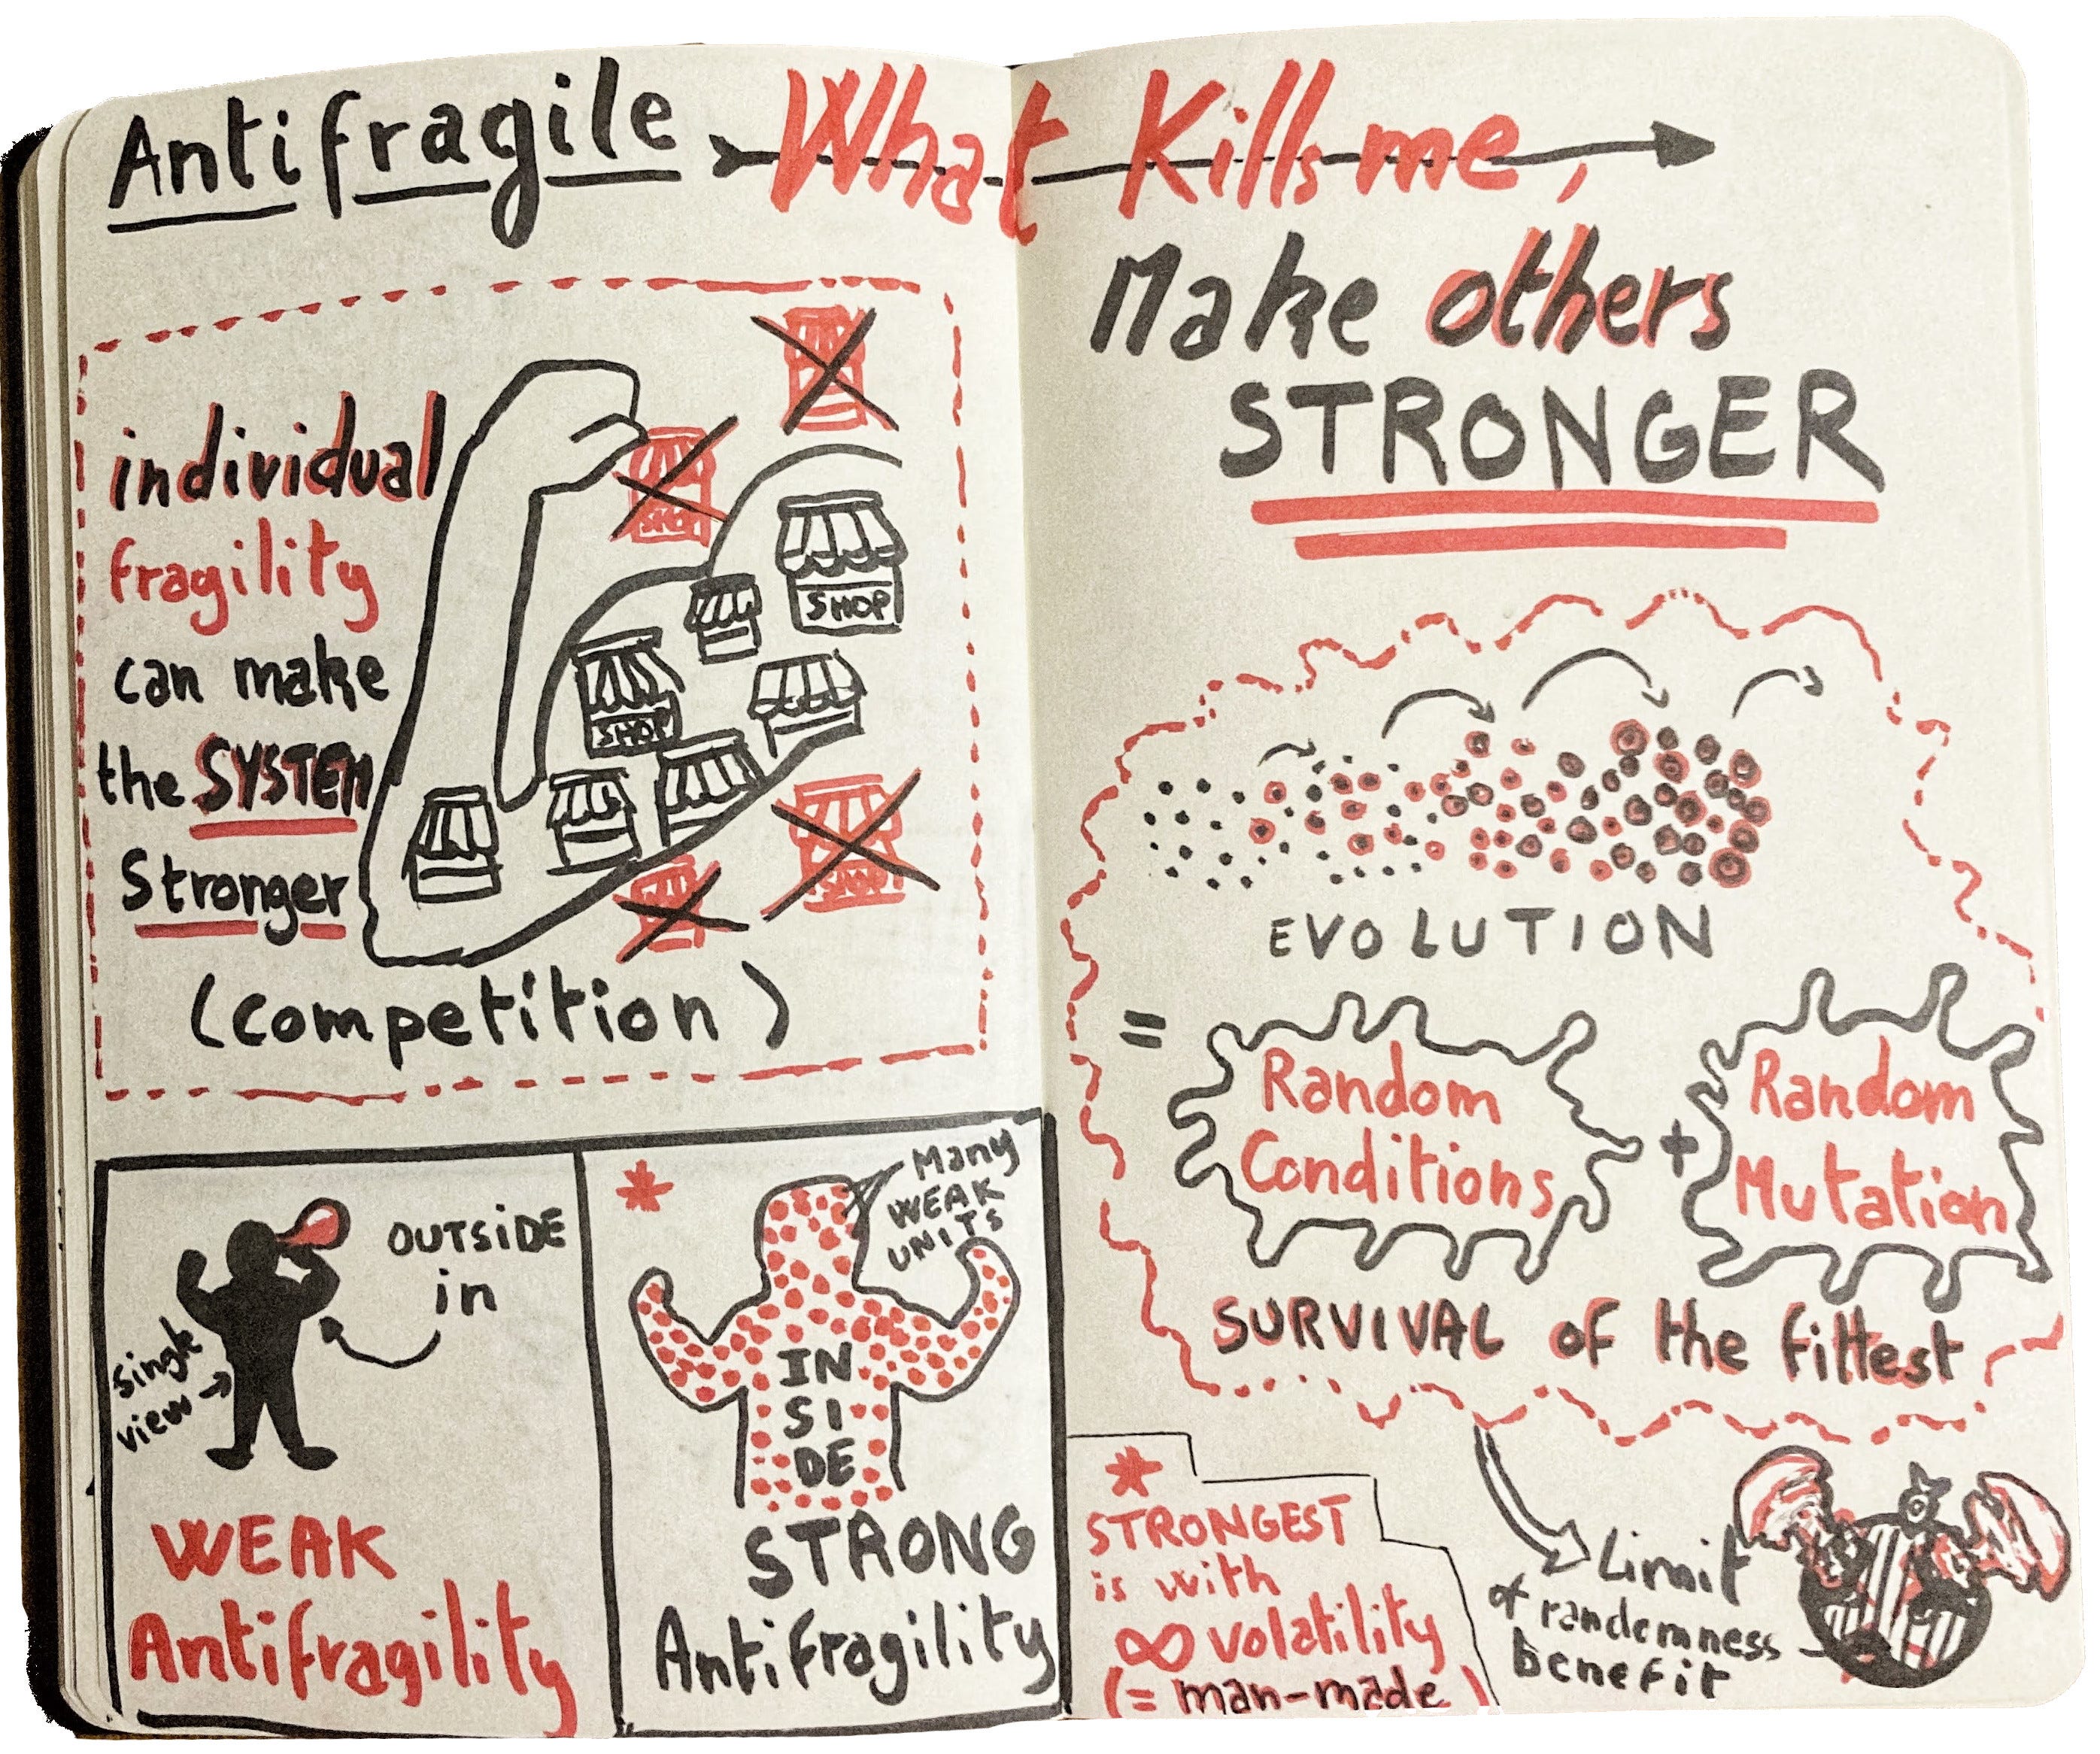 Antifragile What Kills me,
Make others
STRONGER
individual
fragility
can make
the SYSTEM
Stronger
(competition)
SHOP
SHOP
SHOP
SHOP
OUTSIDE
in
Single
view
WEAK
Antifragility
Many
WEAK
UNITS
IN
SI
DE
STRONG
Antifragility
EVOLUTION
= Random
Conditions
+ Random
Mutation
SURVIVAL of the fittest
* STRONGEST
is with
∞ volatility
(= man-made)
Limit
randemness
benefit